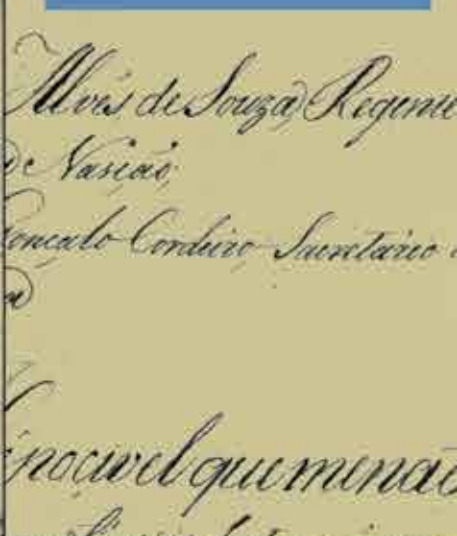 Alves de Souza Regente
de Nasçaõ
Gonçalo Cordeiro Sacretario
pocivel que menaõ